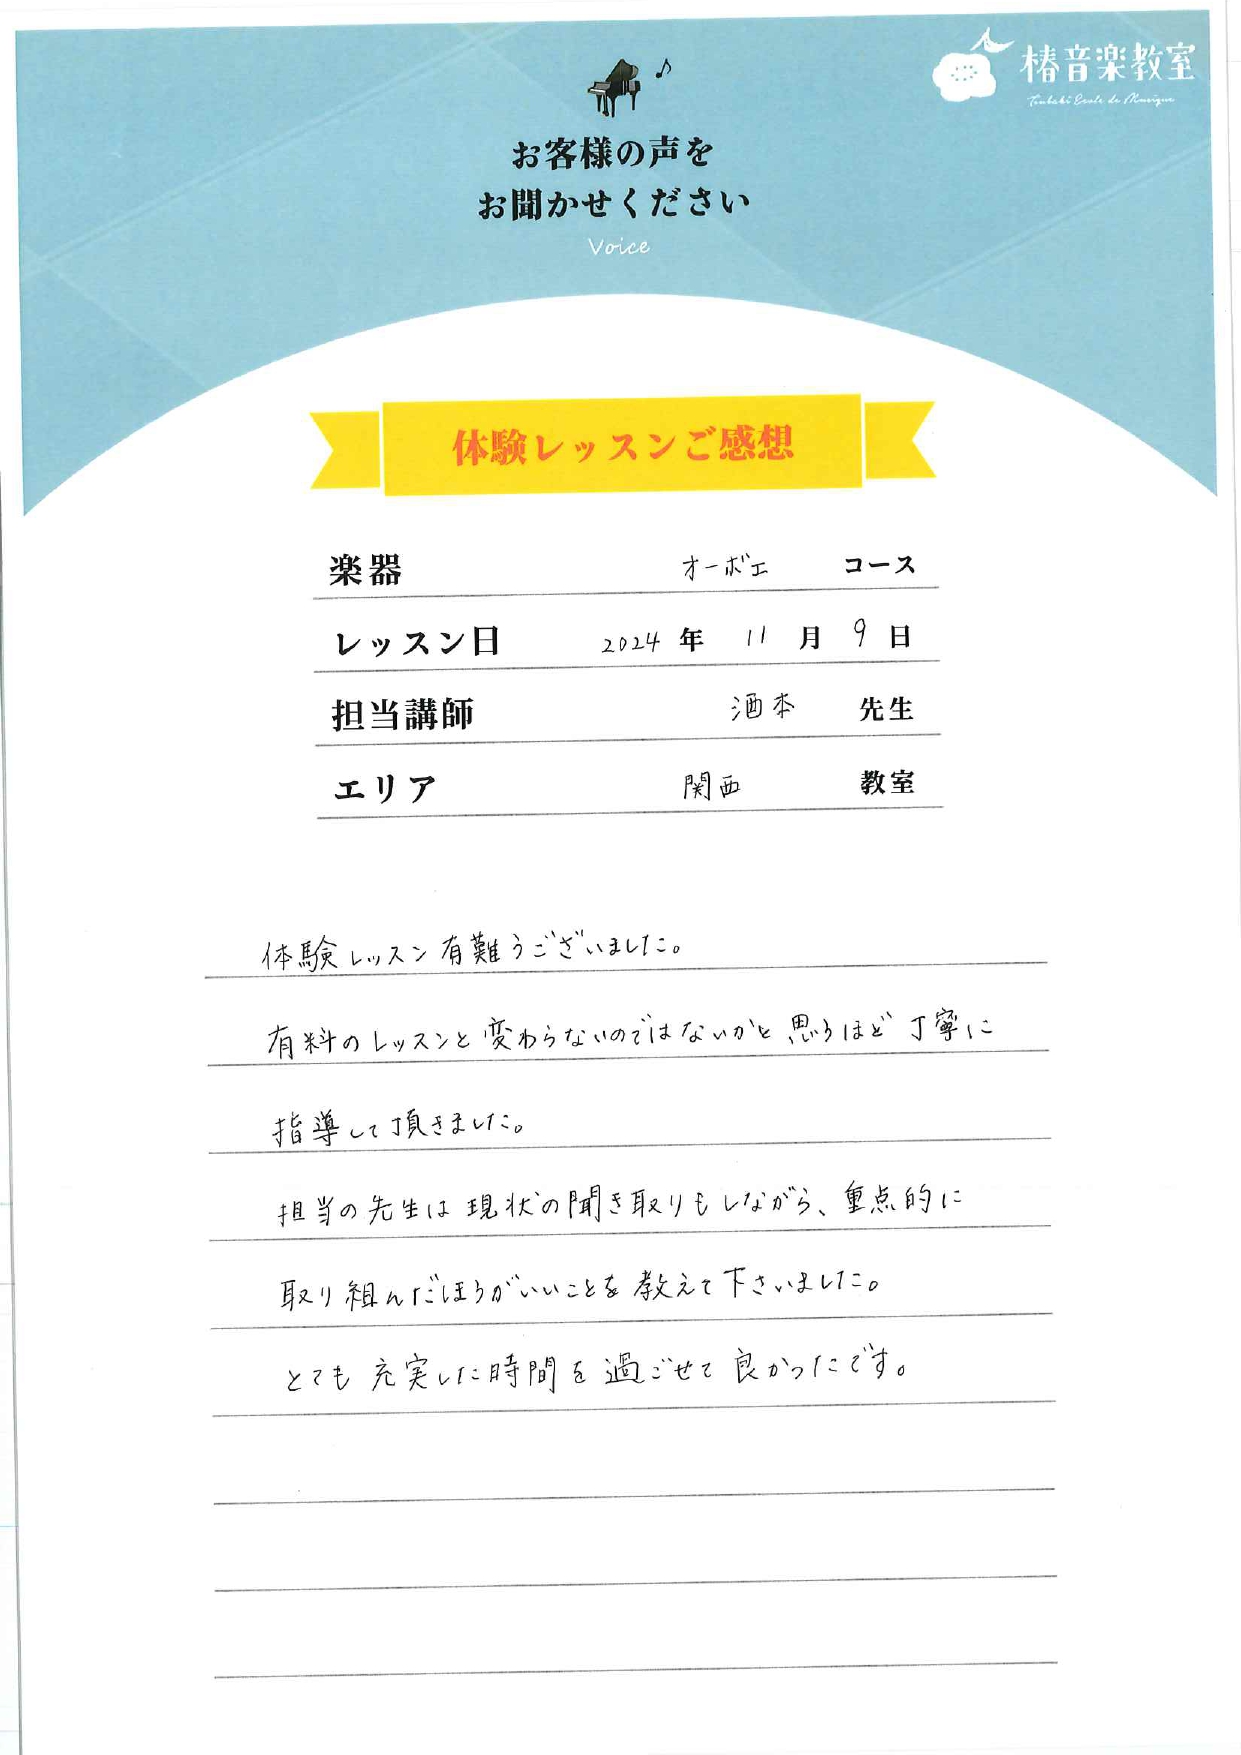 椿音楽教室
Tsubaki Ecole de Musique
お客様の声を
お聞かせください
Voice
体験レッスンご感想
楽器 オーボエ コース
レッスン日 2024 年 11 月 9 日
担当講師 酒本 先生
エリア 関西 教室
体験レッスン有難うございました。
有料のレッスンと変わらないのではないかと思うほど丁寧に
指導して頂きました。
担当の先生は現状の聞き取りもしながら、重点的に
取り組んだほうがいいことを教えて下さいました。
とても充実した時間を過ごせて良かったです。